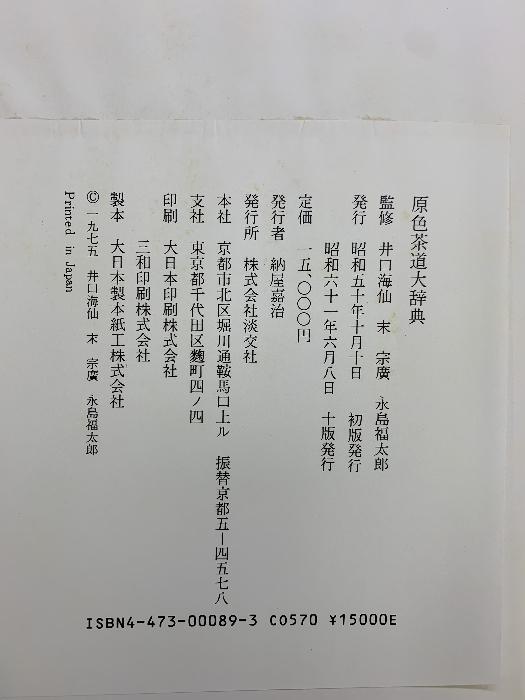 原色茶道大辞典
監修　井口海仙　末　宗廣　永島福太郎
発行　昭和五十年十月十日　初版発行
昭和六十一年六月八日　十版発行
定価　一五、〇〇〇円
発行者　納屋嘉治
発行所　株式会社淡交社
本社　京都市北区堀川通鞍馬口上ル　振替京都五−四五七八
支社　東京都千代田区麴町四ノ四
印刷　大日本印刷株式会社
三和印刷株式会社
製本　大日本製本紙工株式会社
© 一九七五　井口海仙　末　宗廣　永島福太郎
Printed in Japan
ISBN4-473-00089-3 C0570 ¥15000E